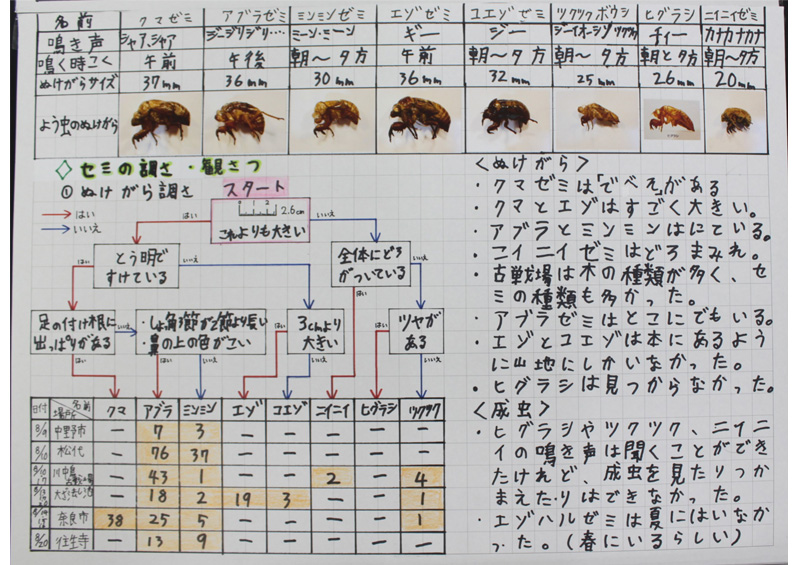 名前 クマゼミ アブラゼミ ミンミンゼミ エゾゼミ コエゾゼミ ツクツクボウシ ヒグラシ ニイニイゼミ
鳴き声 シャア、シャア ジージリジリ… ミーン、ミーン ギー ジー ジーイオーシ ツクツク チィー カナカナカナ
鳴く時こく 午前 午後 朝〜夕方 午前 朝〜夕方 朝〜夕方 朝と夕方 朝〜夕方
ぬけがらサイズ 37mm 36mm 30mm 36mm 32mm 25mm 26mm 20mm
よう虫のぬけがら
◇セミの調さ・観さつ
①ぬけがら調さ スタート
→はい
→いいえ
0 1 2 2.6cm
これよりも大きい
はい いいえ
とう明で
すけている
全体にどろ
がついている
はい いいえ はい いいえ
足の付け根に
出っぱりがある
いいえ
・しょっ角3節が2節より長い
・鼻の上の色がこい
3cmより
大きい
ツヤが
ある
はい いいえ はい いいえ はい いいえ
日付 場所 名前 クマ アブラ ミンミン エゾ コエゾ ニイニイ ヒグラシ ツクツク
8/9 中野市 ー 7 3 ー ー ー ー ー
8/10 松代 ー 76 37 ー ー ー ー ー
8/10 17 川中島古戦場 ー 43 1 ー ー 2 ー 4
ー 18 2 19 3 ー ー 1
8/14 15 奈良市 38 25 5 ー ー ー ー 1
8/20 往生寺 ー 13 9 ー ー ー ー ー
<ぬけがら>
・クマゼミは「でべそ」がある
・クマとエゾはすごく大きい。
・アブラとミンミンはにている。
・ニイニイゼミはどろまみれ。
・古戦場は木の種類が多く、セ
ミの種類も多かった。
・アブラゼミはどこにでもいる。
・エゾとコエゾは本にあるよう
に山地にしかいなかった。
・ヒグラシは見つからなかった。
<成虫>
・ヒグラシやツクツク、ニイニ
イの鳴き声は聞くことができ
たけれど、成虫を見たりつか
まえたりはできなかった。
・エゾハルゼミは夏にはいなか
った。(春にいるらしい)